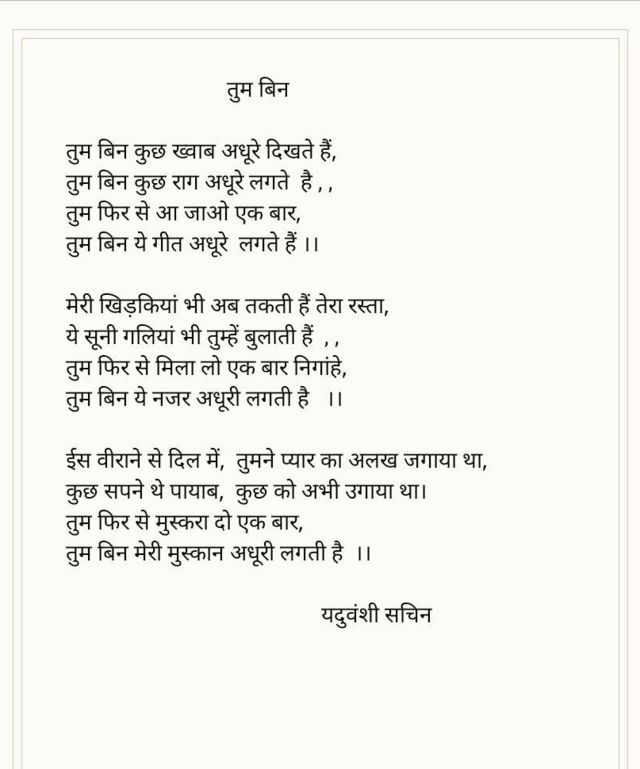 तुम बिन
तुम बिन कुछ ख्वाब अधूरे दिखते हैं,
तुम बिन कुछ राग अधूरे लगते  है , ,
तुम फिर से आ जाओ एक बार,
तुम बिन ये गीत अधूरे  लगते हैं ।।
मेरी खिड़कियां भी अब तकती हैं तेरा रस्ता,
ये सूनी गलियां भी तुम्हें बुलाती हैं  , ,
तुम फिर से मिला लो एक बार निगांहे,
तुम बिन ये नजर अधूरी लगती है   ।।
ईस वीराने से दिल में,  तुमने प्यार का अलख जगाया था,
कुछ सपने थे पायाब,  कुछ को अभी उगाया था।
तुम फिर से मुस्करा दो एक बार,
तुम बिन मेरी मुस्कान अधूरी लगती है  ।।
यदुवंशी सचिन